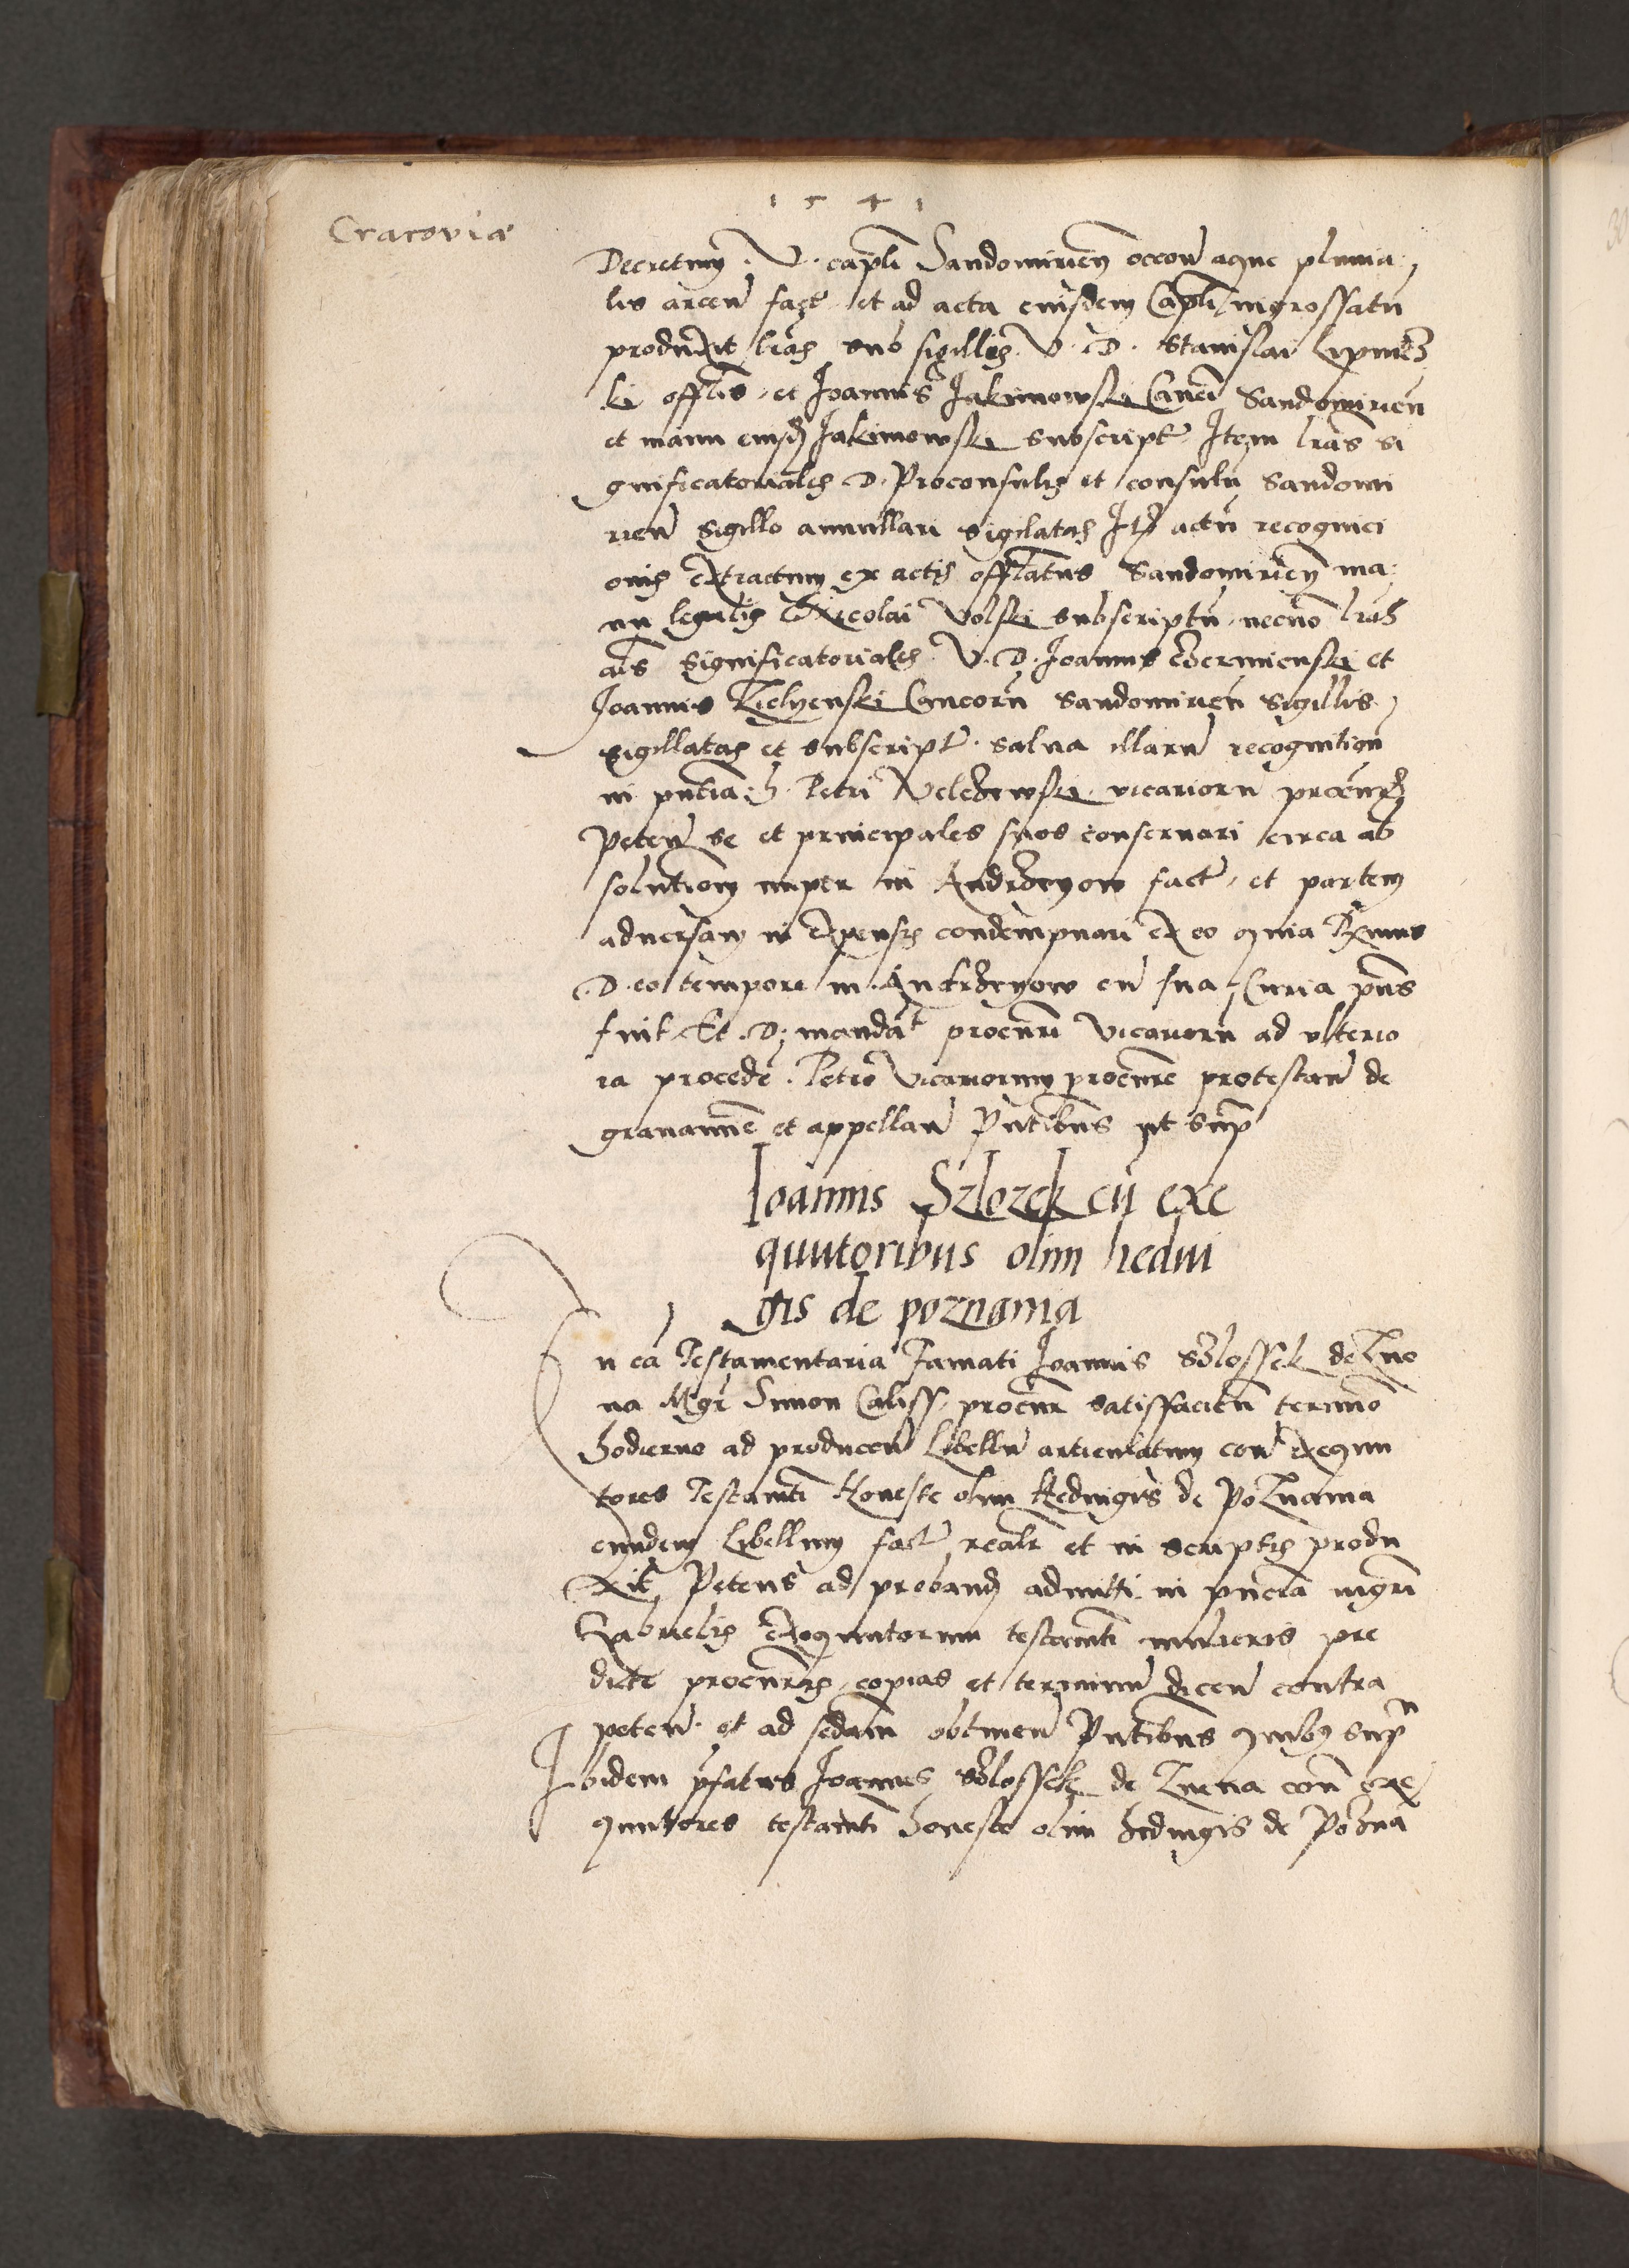 1541
Cracoviæ
Decretum V. capli Sandomirien occon aque pluvia
lis arcen fact et ad acta eiusdem Capli ingrossatu
produxit lras sub sigillis V. D. Stanislai
ki offlis et Joannis Jakimowski Canci Sandomirien
et manu eiusd Jakimowski subscript Item lras si
gnificatoriales D. Proconsulis et consulu Sandomi
rien sigillo annullari sigilatas It actu recognici
onis extractum ex actis offlatus Sandomirien ma
nu Nicolai Volski subscriptu necno lras
als significatoriales V. D. Joannis et
Joannis Zielyenski Cancoru Sandomirien sigillis
sigillatas et subscript salva illaru recognition
in pntia h. Petri vicarioru procur
Peten se et principales suos conservari circa ab
solutiom nuper in Andrzeyow fact et partem
adversam in expensis condempnari ex eo quia Rmus
D. eo tempore in Andrzeyow cu sua Curia pns
fuit Et D. mandat procuri vicarioru ad ulterio
ra procede Petro vicariorum procure protestan de
gravamine et appellan Pntibus ut sup
Ioannis Szlozek cu exe
quutoribus olim hedui
gis de poznania
In ca Testamentaria famati Joannis Szlosssek de Zno
na Mgr Simon Caliss procur satisfacien termino
hodierno ad producen Libellu articulatum con exequu
tores Testamti Honeste olim Hedvigis de Poznania
eundem Libellum fact realr et in scriptis produ
xit Petens ad proband admitti in pncia mgri
Gabrielis exequutorum testamti mulieris pre
dicte procurris copias et terminu dicen contra
peten et ad sedam obtinen Pntibus quibus sup
Ibidem pfatus Joannes Szlossek de Znena con exe
quutores testamti honeste olim hedvigis de Pozna